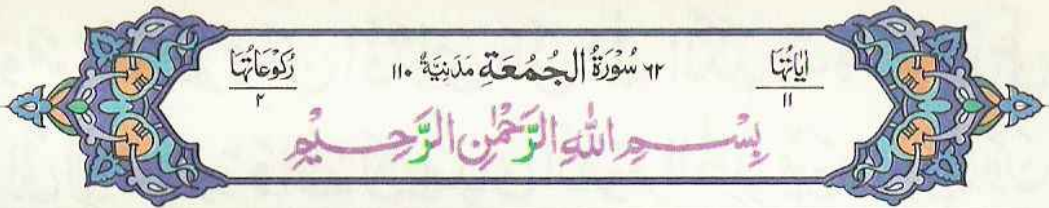 اٰيَاتُهَا ٦٢ سُوْرَةُ الْجُمُعَةِ مَدَنِيَّةٌ ١١٠ رُكُوْعَاتُهَا
١١ ٢
بِسْمِ اللّٰهِ الرَّحْمٰنِ الرَّحِيْمِ